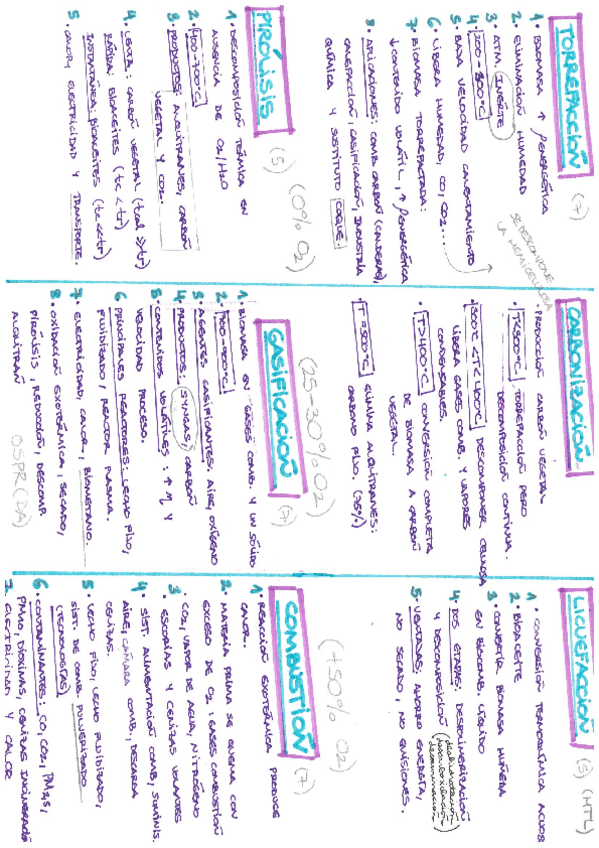 TORREFACCIÓN (7)
1. BIOMASA ↑ ρENERGÉTICA
2. ELIMINACIÓN HUMEDAD
3. ATM. INERTE
4. 200-300ºC
5. BAJA VELOCIDAD CALENTAMIENTO
SE DESCOMPONE
LA HEMICELULOSA
6. LIBERA HUMEDAD, CO, CO2....
7. BIOMASA TORREFACTADA:
↓ CONTENIDO VOLÁTIL, ↑ ρENERGÉTICA
8. APLICACIONES: COMB. CARBÓN (CALDERAS),
CALEFACCIÓN, GASIFICACIÓN, INDUSTRIA
QUÍMICA Y SUSTITUTO COQUE
CARBONIZACIÓN
· PRODUCCIÓN CARBÓN VEGETAL
· T<300ºC TORREFACCIÓN PERO
DESCOMPOSICIÓN CONTINUA.
· 300ºC<T<400ºC DESCOMPONER CELULOSA
LIBERA GASES COMB. Y VAPORES
CONDENSABLES.
· T>400ºC CONVERSIÓN COMPLETA
DE BIOMASA A CARBÓN
VEGETAL.
· T=500ºC ELIMINA ALQUITRANES:
CARBONO FIJO. (75%)
LICUEFACCIÓN (5) (HTL)
1. CONVERSIÓN TERMOQUÍMICA ACUOSA
2. BIOACEITE
3. CONVERTIR BIOMASA HÚMEDA
EN BIOCOMB. LÍQUIDO
4. DOS ETAPAS: DESPOLIMERIZACIÓN
Y DESCOMPOSICIÓN (deshidratación
descarboxilación
desaminación)
5. VENTAJAS: AHORRO ENERGÍA,
NO SECADO, NO EMISIONES.
PIRÓLISIS (5) (0% O2)
1. DESCOMPOSICIÓN TÉRMICA EN
AUSENCIA DE O2/H2O
2. 400-700ºC
3. PRODUCTOS: ALQUITRANES, CARBÓN
VEGETAL Y CO2.
4. LENTA: CARBÓN VEGETAL (tcal >> tr)
RÁPIDA: BIOACEITES (tc < tr)
INSTANTÁNEA: BIOACEITES (tc << tr)
5. CALOR, ELECTRICIDAD Y TRANSPORTE.
(25-30% O2)
GASIFICACIÓN (7)
1. BIOMASA EN GASES COMB. Y UN SÓLIDO
2. 700-900ºC
3. AGENTES GASIFICANTES: AIRE, OXÍGENO
4. PRODUCTOS: SYNGAS, CARBÓN
5. CONTENIDOS VOLÁTILES: ↑ M, Y
VELOCIDAD PROCESO.
6. PRINCIPALES REACTORES: LECHO FIJO,
FLUIDIFICADO, REACTOR PLASMA.
7. ELECTRICIDAD, CALOR, BIOMETANO.
8. OXIDACIÓN EXOTÉRMICA, SECADO,
PIRÓLISIS, REDUCCIÓN, DESCOMP.
ALQUITRÁN
OSPR(DA)
(+50% O2)
COMBUSTIÓN (7)
1. REACCIÓN EXOTÉRMICA PRODUCE
CALOR.
2. MATERIA PRIMA SE QUEMA CON
EXCESO DE O2: GASES COMBUSTIÓN
· CO2, VAPOR DE AGUA, NITRÓGENO
3. ESCORIAS Y CENIZAS VOLANTES
4. SIST. ALIMENTACIÓN COMB, SUMINIS.
AIRE, CÁMARA COMB, DESCARGA
CENIZAS.
5. LECHO FIJO, LECHO FLUIDIZADO,
SIST. DE COMB. PULVERIZADO
(TECNOLOGÍAS)
6. CONTAMINANTES: CO, CO2, PM2,5,
PM10, DIOXINAS, CENIZAS INCINERACIÓN
7. ELECTRICIDAD Y CALOR